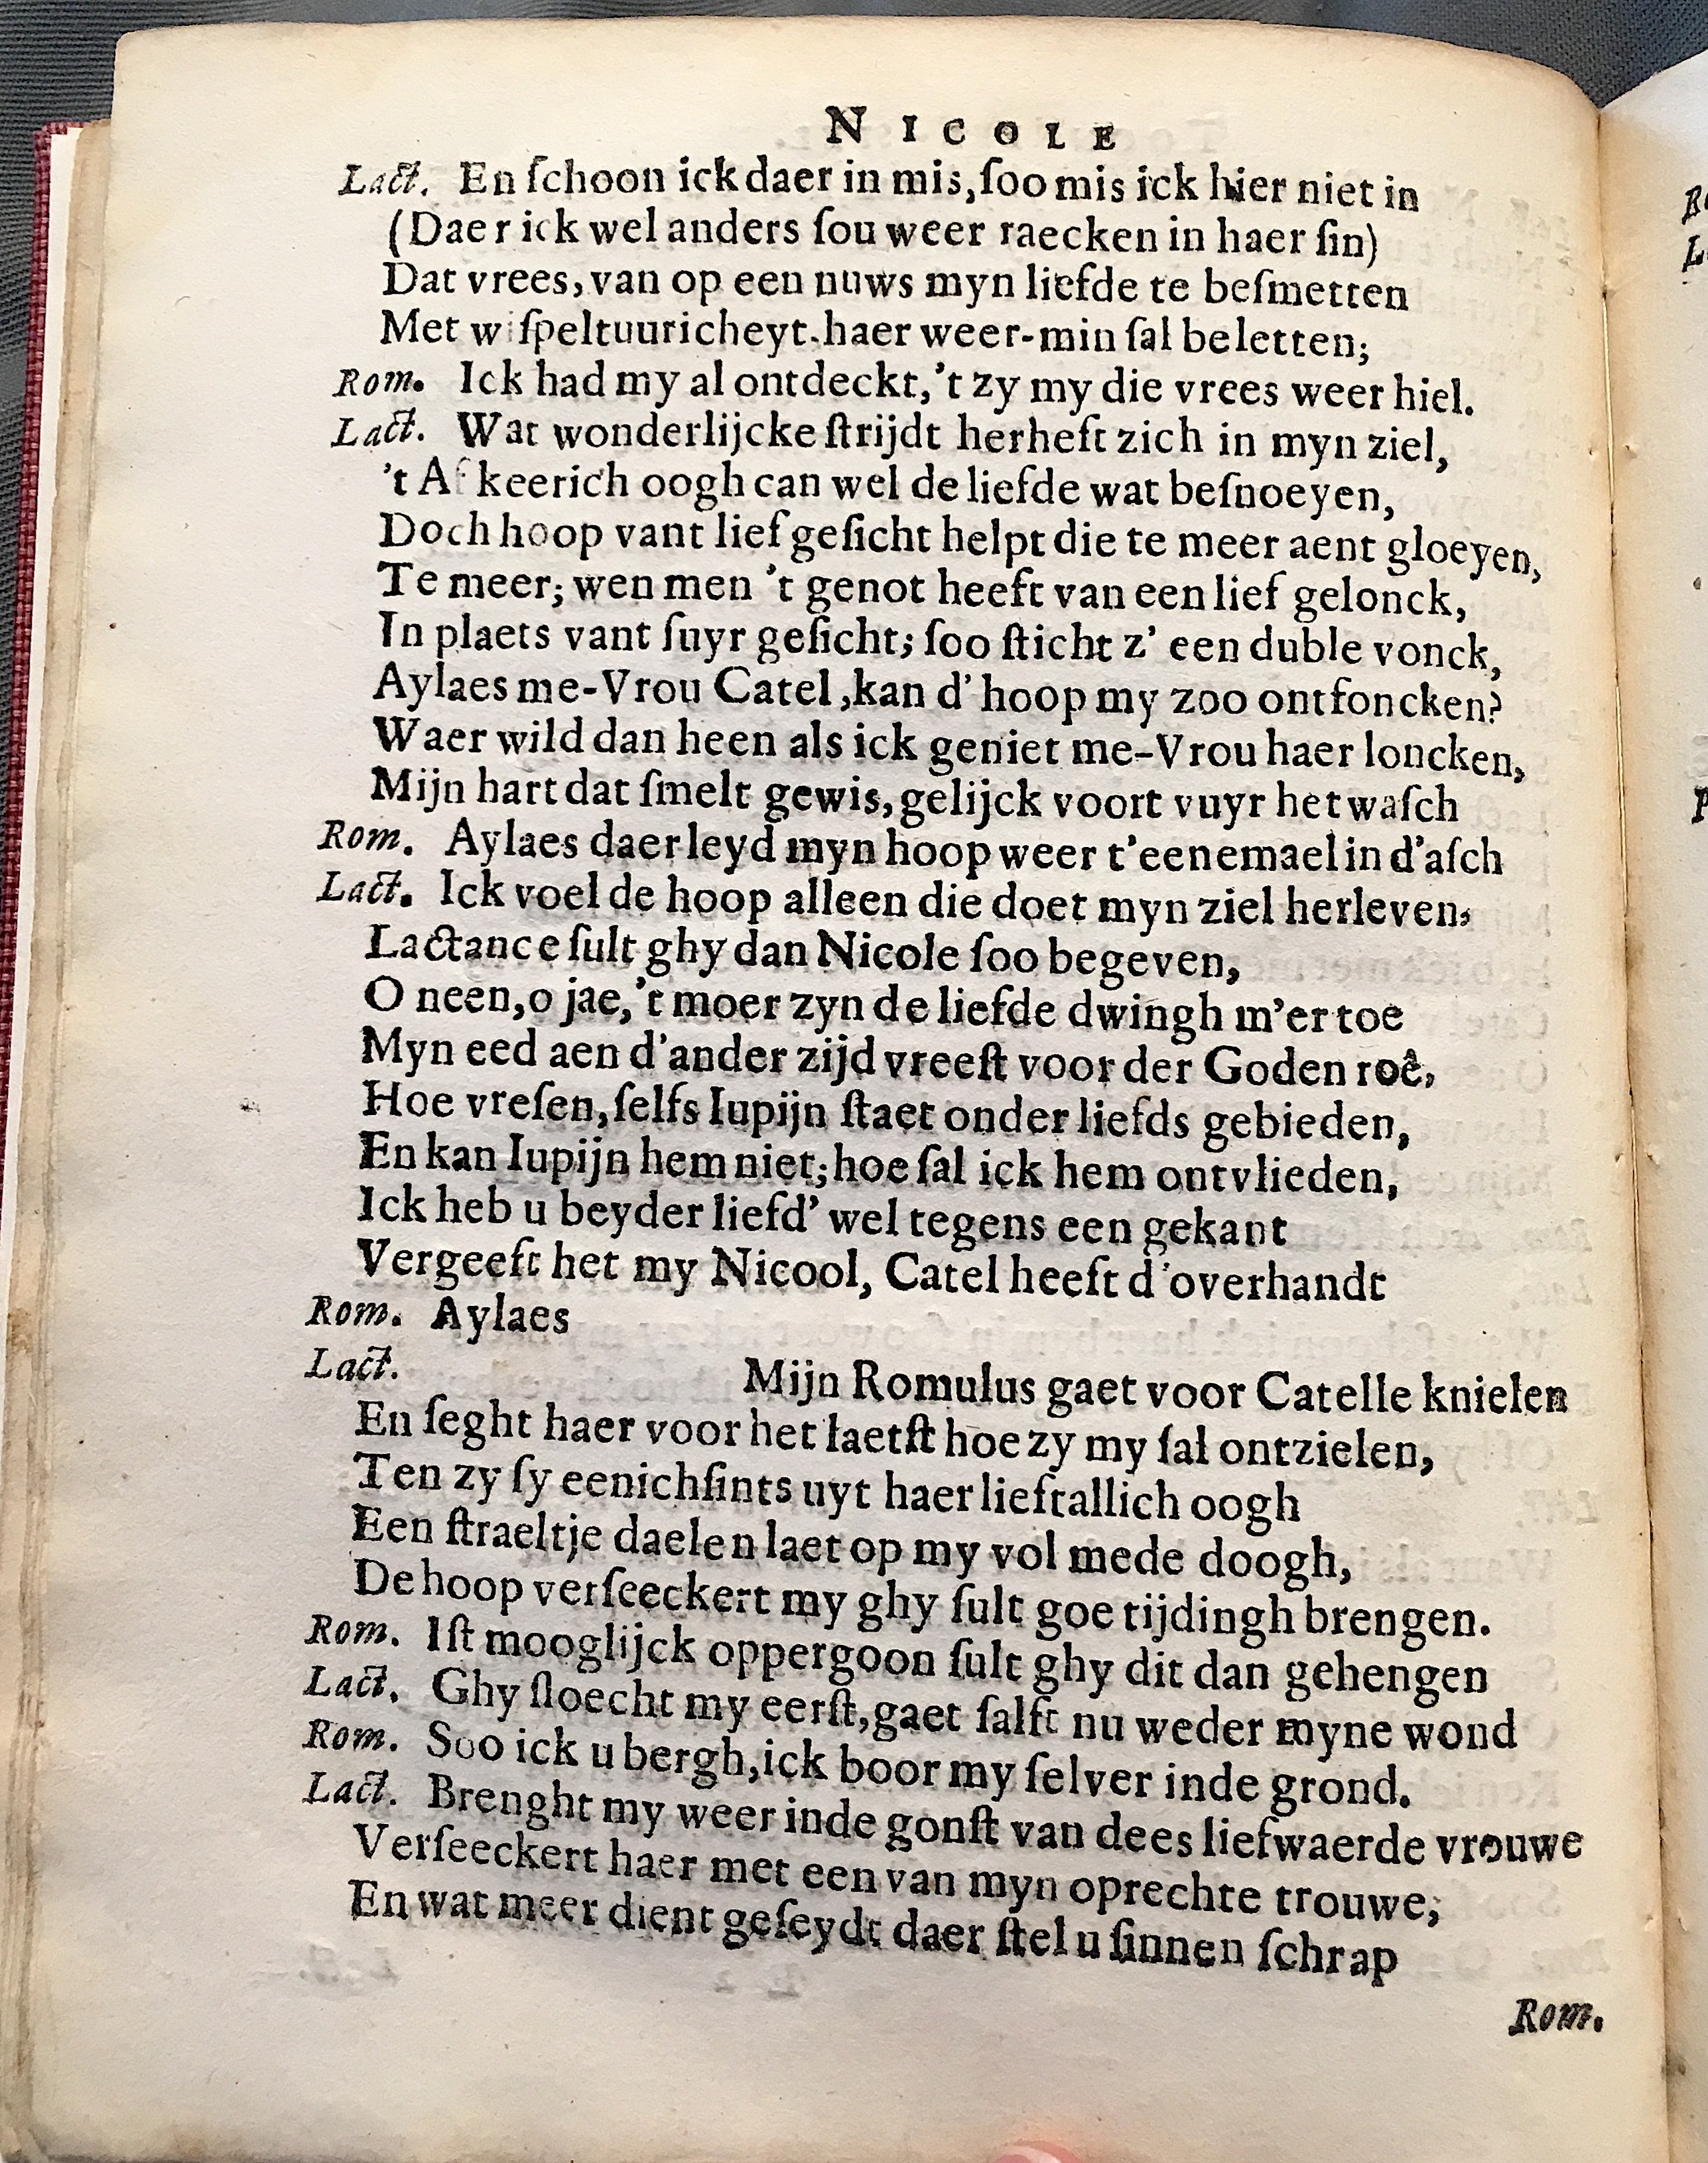 NICOLE
Lact. En ſchoon ick daer in mis, ſoo mis ick hier niet in
(Daer ick wel anders ſou weer raecken in haer ſin)
Dat vrees, van op een nuws myn liefde te beſmetten
Met wiſpeltuuricheyt.haer weer-min ſal beletten;
Rom. Ick had my al ontdeckt, 't zy my die vrees weer hiel.
Lact. Wat wonderlijcke ſtrijdt herheft zich in myn ziel,
't Afkeerich oogh can wel de liefde wat beſnoeyen,
Doch hoop vant lief geſicht helpt die te meer aent gloeyen,
Te meer; wen men 't genot heeft van een lief gelonck,
In plaets vant ſuyr geſicht; ſoo ſticht z' een duble vonck,
Aylaes me-Vrou Catel, kan d' hoop my zoo ontfoncken?
Waer wild dan heen als ick geniet me-Vrou haer loncken,
Mijn hart dat ſmelt gewis, gelijck voort vuyr het waſch
Rom. Aylaes daer leyd myn hoop weer t'eenemael in d'aſch
Lact. Ick voel de hoop alleen die doet myn ziel herleven,
Lactance ſult ghy dan Nicole ſoo begeven,
O neen, o jae, 't moer zyn de liefde dwingh m'er toe
Myn eed aen d'ander zijd vreeſt voor der Goden roê,
Hoe vreſen, ſelfs Iupijn ſtaet onder liefds gebieden,
En kan Iupijn hem niet; hoe ſal ick hem ontvlieden,
Ick heb u beyder liefd' wel tegens een gekant
Vergeeft het my Nicool, Catel heeft d'overhandt
Rom. Aylaes
Lact. Mijn Romulus gaet voor Catelle knielen
En ſeght haer voor het laetſt hoe zy my ſal ontzielen,
Ten zy ſy eenichſints uyt haer lieftallich oogh
Een ſtraeltje daelen laet op my vol mede doogh,
De hoop verſeeckert my ghy ſult goe tijdingh brengen.
Rom. Iſt mooglijck oppergoon ſult ghy dit dan gehengen
Lact. Ghy ſloecht my eerſt, gaet ſalft nu weder myne wond
Rom. Soo ick u bergh, ick boor my ſelver inde grond.
Lact. Brenght my weer inde gonſt van dees liefwaerde vrouwe
Verſeeckert haer met een van myn oprechte trouwe;
En wat meer dient geſeydt daer ſtel u ſinnen ſchrap
Rom.